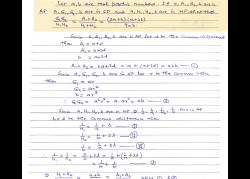 Let a, b are real positive numbers. If a, A₁, A₂, b are in
AP a, G₁, G₂, b are in GP and a, H₁, H₂, b are in HP. Show that
G₁G₂/H₁H₂ = A₁+A₂/H₁+H₂ = (2a+b)(a+2b)/9ab
Since a, A₁, A₂, b are in AP. Let d be the common difference
then A₁ = a+d
A₂ = a+2d
b = a+3d
A₁+A₂ = 2a+3d = a+(a+3d) = a+b
Since a, G₁, G₂, b are in GP let r be the common ratio
then G₁ = ar
G₂ = ar²
b = ar³
G₁G₂ = a²r³ = a·ar³ = ab
Since a, H₁, H₂, b are in HP ⇒ 1/a, 1/H₁, 1/H₂, 1/b are in AP
Let d be the common difference then
1/H₁ = 1/a + d
1/H₂ = 1/a + 2d
1/b = 1/a + 3d
∴ 1/H₁ + 1/H₂ = 2/a + 3d = 1/a + (1/a + 3d)
= 1/a + 1/b